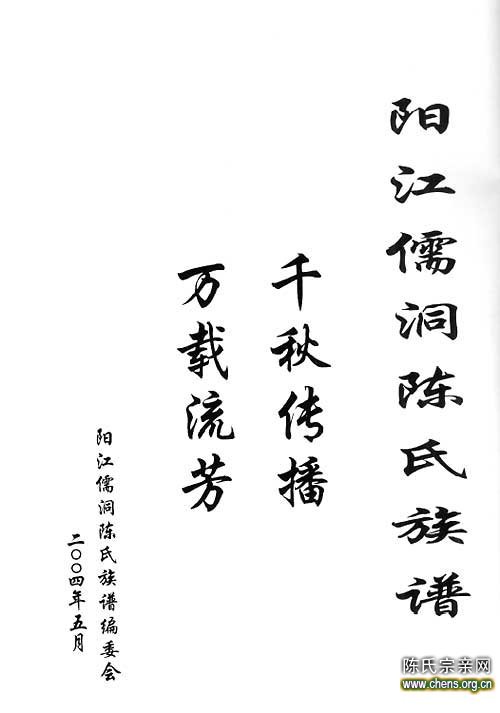 阳江儒洞陈氏族谱
千秋传播
万载流芳
阳江儒洞陈氏族谱编委会
二〇〇四年五月
陈氏宗亲网
www.chens.org.cn